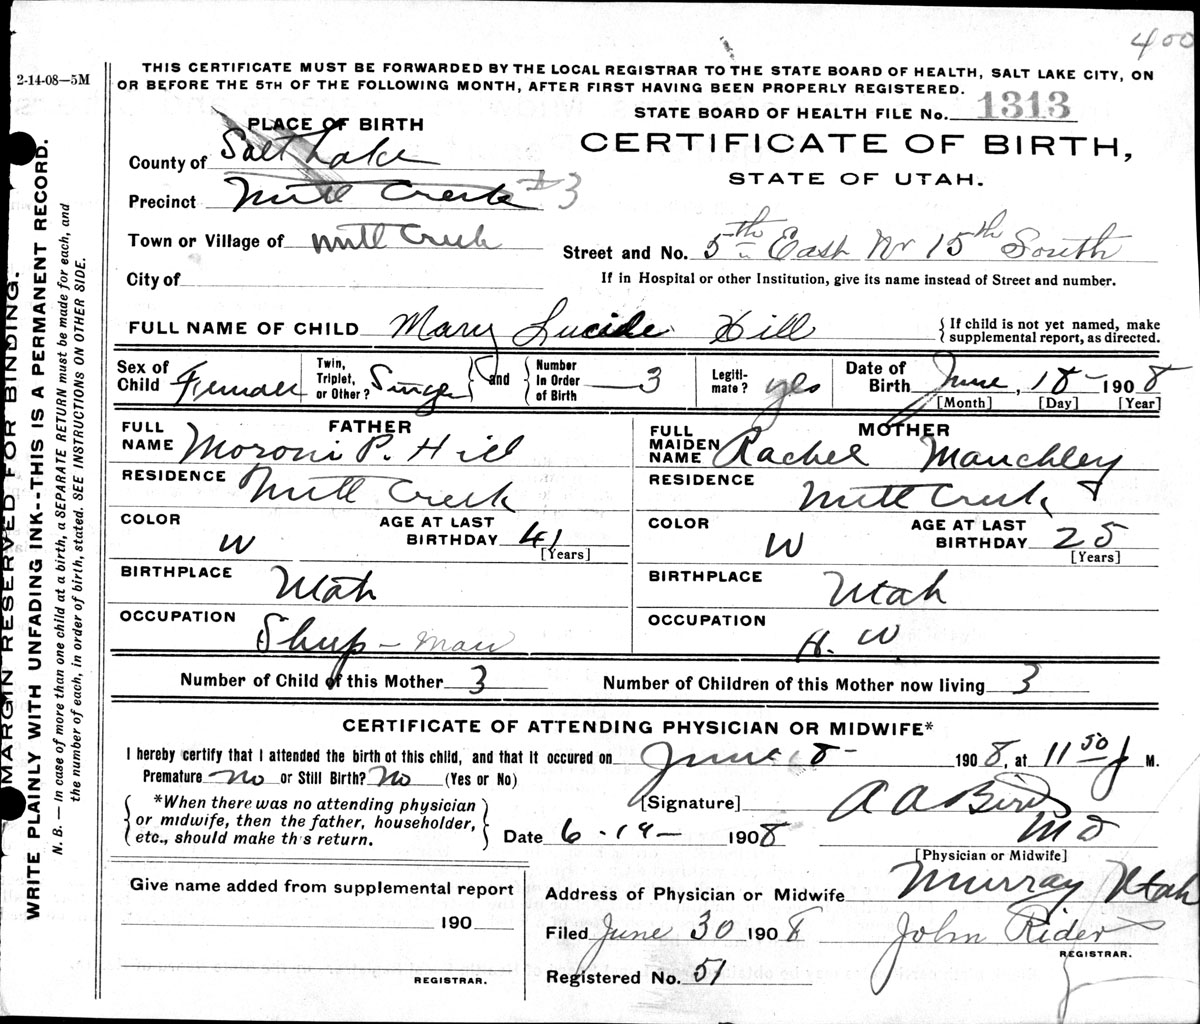 400
2-14-08—5M
THIS CERTIFICATE MUST BE FORWARDED BY THE LOCAL REGISTRAR TO THE STATE BOARD OF HEALTH, SALT LAKE CITY, ON
OR BEFORE THE 5TH OF THE FOLLOWING MONTH, AFTER FIRST HAVING BEEN PROPERLY REGISTERED.
STATE BOARD OF HEALTH FILE No. 1313
PLACE OF BIRTH
CERTIFICATE OF BIRTH,
STATE OF UTAH.
County of Salt Lake
Precinct Mill Creek # 3
Town or Village of Mill Creek
Street and No. 5th East Nr 15th South
City of
If in Hospital or other Institution, give its name instead of Street and number.
FULL NAME OF CHILD Mary Lucile Hill
{ If child is not yet named, make
supplemental report, as directed.
Sex of Child Female
Twin, Triplet, or Other? Single } and { Number In Order of Birth 3
Legiti-mate? yes
Date of Birth June, 18 1908
[Month] [Day] [Year]
FATHER
FULL NAME Moroni P. Hill
RESIDENCE Mill Creek
COLOR W
AGE AT LAST BIRTHDAY 41
[Years]
BIRTHPLACE Utah
OCCUPATION Sheep-man
MOTHER
FULL MAIDEN NAME Rachel Mauchley
RESIDENCE Mill Creek
COLOR W
AGE AT LAST BIRTHDAY 25
[Years]
BIRTHPLACE Utah
OCCUPATION H. W
Number of Child of this Mother 3
Number of Children of this Mother now living 3
CERTIFICATE OF ATTENDING PHYSICIAN OR MIDWIFE*
I hereby certify that I attended the birth of this child, and that it occured on June 18 1908, at 11 50 M.
Premature No or Still Birth? No (Yes or No)
{ *When there was no attending physician
or midwife, then the father, householder,
etc., should make th's return. }
[Signature] A A Bird
M D
[Physician or Midwife]
Date 6-19-1908
Give name added from supplemental report
190
REGISTRAR.
Address of Physician or Midwife Murray Utah
Filed June 30 1908 John Rider
REGISTRAR.
Registered No. 51
MARGIN RESERVED FOR BINDING.
WRITE PLAINLY WITH UNFADING INK--THIS IS A PERMANENT RECORD.
N. B. — In case of more than one child at a birth, a SEPARATE RETURN must be made for each, and
the number of each, in order of birth, stated. SEE INSTRUCTIONS ON OTHER SIDE.